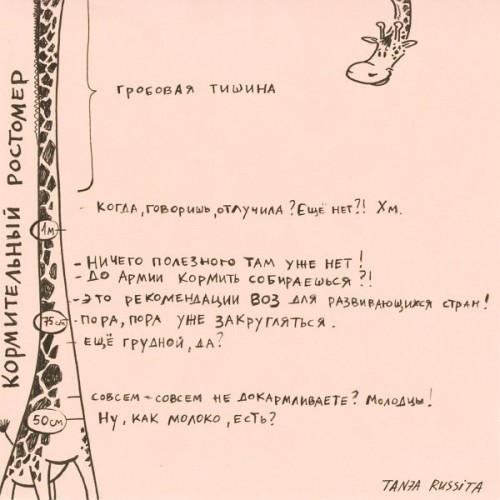 КОРМИТЕЛЬНЫЙ РОСТОМЕР
ГРОБОВАЯ ТИШИНА
- КОГДА, ГОВОРИШЬ, ОТЛУЧИЛА? ЕЩЁ НЕТ?! ХМ.
1М
- НИЧЕГО ПОЛЕЗНОГО ТАМ УЖЕ НЕТ!
- ДО АРМИИ КОРМИТЬ СОБИРАЕШЬСЯ?!
- ЭТО РЕКОМЕНДАЦИИ ВОЗ ДЛЯ РАЗВИВАЮЩИХСЯ СТРАН!
75СМ
- ПОРА, ПОРА УЖЕ ЗАКРУГЛЯТЬСЯ.
- ЕЩЁ ГРУДНОЙ, ДА?
- СОВСЕМ-СОВСЕМ НЕ ДОКАРМЛИВАЕТЕ? МОЛОДЦЫ!
50СМ
НУ, КАК МОЛОКО, ЕСТЬ?
TANJA RUSSITA